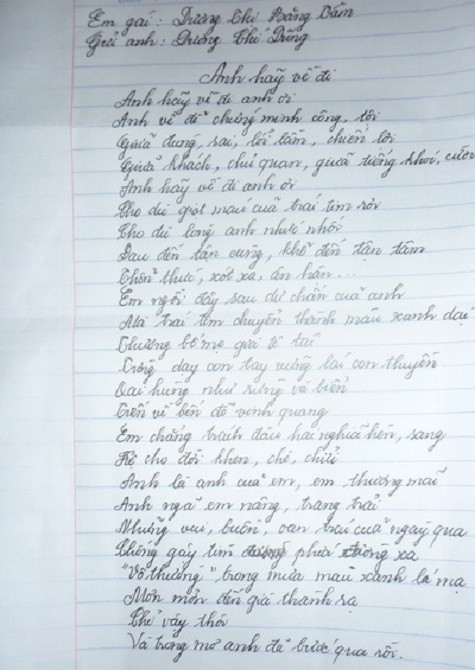 Em gái: Dương Thị Bằng Tâm
Gửi anh: Dương Chí Dũng
Anh hãy về đi
Anh hãy về đi anh ơi
Anh về để chứng minh công, tội
Giữa đúng, sai, lối lầm, chiến lợi
Giữa khách, chủ quan, giữa tiếng khóc, cười
Anh hãy về đi anh ơi
Cho dù giọt máu của trái tim rơi
Cho dù lòng anh nhức nhối
Đau đến tận cùng, khổ đến tận tâm
Thổn thức, xót xa, ân hận...
Em ngồi đây sau dư chấn của anh
Mà trái tim chuyển thành màu xanh dại
Thương bố mẹ già tê tái
Từng dạy con tay vững lái con thuyền
Oai hùng như rừng và biển
Tiến về bến đỗ vinh quang
Em chẳng trách đâu hai nghĩa hèn, sang
Kệ cho đời khen, chê, chửi
Anh là anh của em, em thương mãi
Anh ngã em nâng, trang trải
Những vui, buồn, oan trái của ngày qua
Không gày tìm phía xa
"Vô thường" trong mưa màu xanh lá mạ
Mơn mởn đến già thành rạ
Thế vậy thôi
Và trong mơ anh đã bước qua rồi.